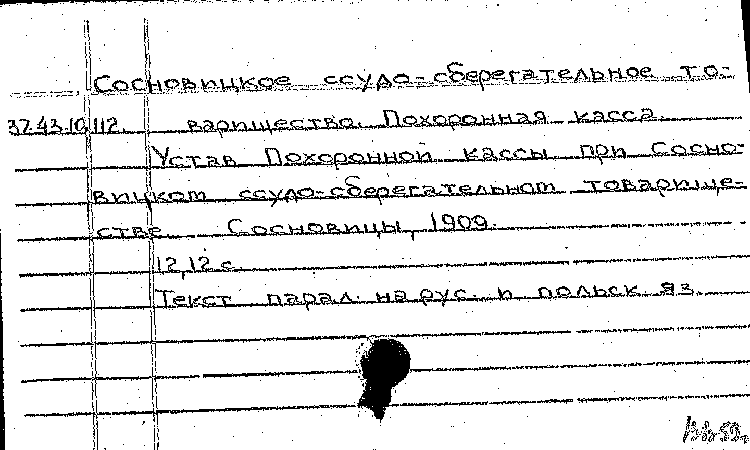 Сосновицкое ссудо-сберегательное то-
32.43.10.112. варищество. Похоронная касса.
Устав Похоронной кассы при Сосно-
вицком ссудо-сберегательном товарище-
стве. Сосновицы, 1909.
12,12 с.
Текст парал. на рус. и польск. яз.